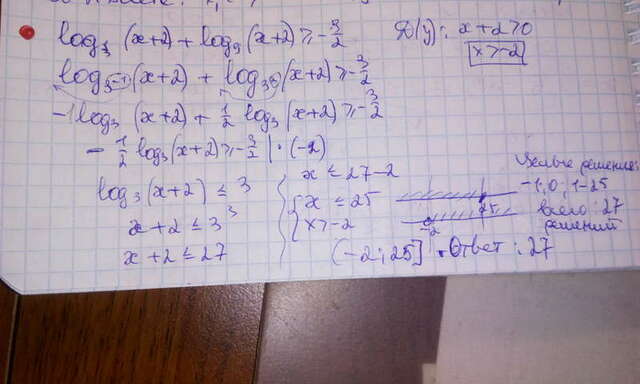 log₃ (x+2) + log₉ (x+2) ≥ -3/2
D(y): x+2>0
x>-2
log₃₋₁ (x+2) + log₃₂ (x+2) ≥ -3/2
-1 log₃ (x+2) + 1/2 log₃ (x+2) ≥ -3/2
- 1/2 log₃ (x+2) ≥ -3/2 | · (-2)
log₃ (x+2) ≤ 3
x+2 ≤ 3³
x+2 ≤ 27
x ≤ 27-2
{ x ≤ 25
x>-2
25
-2
(-2; 25]. Ответ: 27
Целые решения:
-1; 0; 1-25
всего: 27
решений